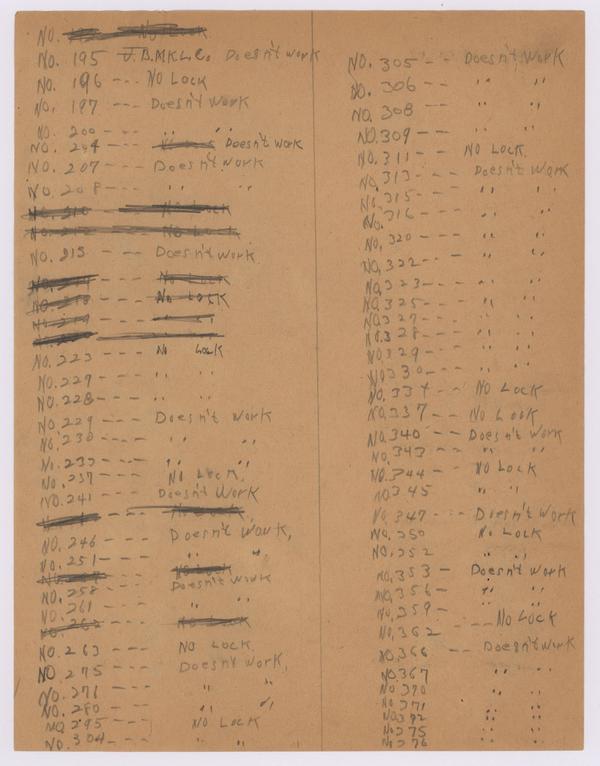 NO. No Lock
NO. 195 J.B.MKL.Co. Doesn't work
NO. 196 --- NO LOCK
NO. 197 --- Doesn't work
NO. 200 --- " "
NO. 204 --- Doesn't work
NO. 207 --- Doesn't work
NO. 208 --- " "
NO. 210 --- No Lock
NO. 212 --- No Lock
NO. 215 --- Doesn't work
NO. --- No Lock
NO. --- No Lock
NO. 219 ---
NO. 223 --- No Lock
NO. 227 --- " "
NO. 228 --- " "
NO. 229 --- Doesn't work
NO. 230 --- " "
NO. --- " "
NO. 237 --- No Lock
NO. 241 --- Doesn't work
NO. 246 --- Doesn't work,
NO. 251 --- " "
NO. No Lock
NO. 258 --- Doesn't work
NO. 261 --- " "
NO. 262 --- No Lock
NO. 263 --- NO LOCK
NO 275 --- Doesn't work,
NO. 276 --- " "
NO. 280 --- " "
NO 295 --- NO LOCK
NO. 304 --- " "
NO. 305 -- Doesn't work
NO. 306 -- " "
NO. 308 -- " "
NO. 309 -- " "
NO. 311 -- NO LOCK.
NO. 313 --- Doesn't work
NO. 315 -- " "
NO. 316 -- " "
NO. 320 --- " "
NO. 322 --- " "
NO. 323 --- " "
NO. 325 --- " "
NO. 327 --- " "
NO. 328 --- " "
NO. 329 --- " "
NO. 330 --- " "
NO. 334 --- NO LOCK
NO. 337 -- No Lock
NO. 340 -- Doesn't work
NO. 343 -- " "
NO. 344 -- NO LOCK
NO 345 " "
NO. 347 --- Doesn't work
NO. 350 No Lock
NO. 352 " "
NO. 353 - Doesn't work
NO. 356 - " "
NO. 359 - " "
NO. 362 --- No Lock
NO. 366 -- Doesn't work
NO. 367 " "
NO. 370 " "
NO. 371 " "
NO. 372 " "
NO. 375 " "
NO. 376 " "